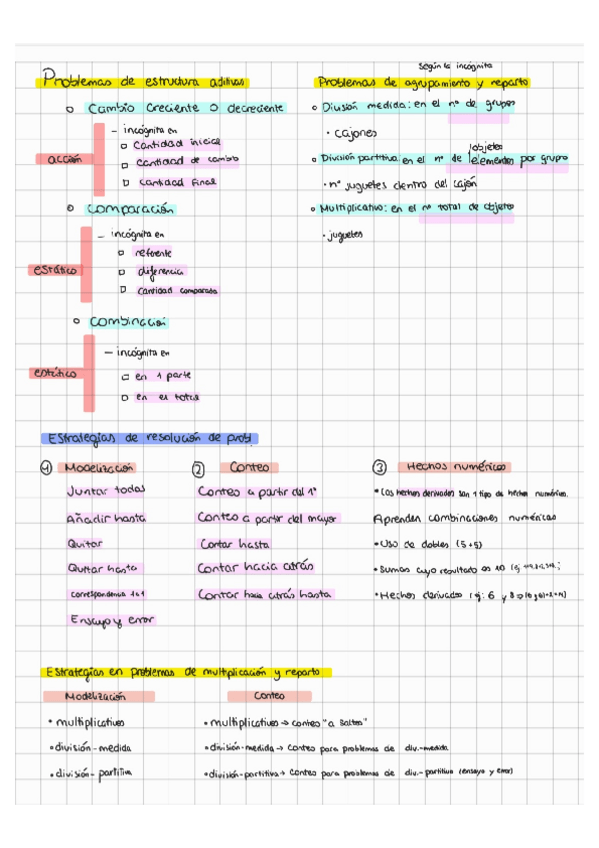 Problemas de estructura aditivas
o Cambio creciente o decreciente
acción
– incógnita en
□ Cantidad inicial
□ Cantidad de cambio
□ Cantidad final
o Comparación
estático
– incógnita en
□ referente
□ diferencia
□ cantidad comparada
o Combinación
estático
– incógnita en
□ en 1 parte
□ en el total
según la incógnita
Problemas de agrupamiento y reparto
o División medida: en el nº de grupos
· cajones
objetos
o División partitiva en el nº de elementos por grupo
· nº juguetes dentro del cajón
o Multiplicativo: en el nº total de objetos
· juguetes
Estrategias de resolución de probl.
1 Modelización
Juntar todos
Añadir hasta
Quitar
Quitar hasta
correspondencia 1 a 1
Ensayo y error
2 Conteo
Conteo a partir del 1º
Conteo a partir del mayor
Contar hasta
Contar hacia atrás
Contar hacia atrás hasta
3 Hechos numéricos
• Los hechos derivados son 1 tipo de hechos numéricos.
Aprenden combinaciones numéricas
• Uso de dobles (5+5)
• Sumas cuyo resultado es 10
• Hechos derivados (ej: 6 y 8
Estrategias en problemas de multiplicación y reparto
Modelización
• multiplicativos
• división-medida
• división-partitiva
Conteo
• multiplicativos → conteo "a saltos"
• división-medida → conteo para problemas de div.-medida
• división-partitiva → conteo para problemas de div.-partitiva (ensayo y error)